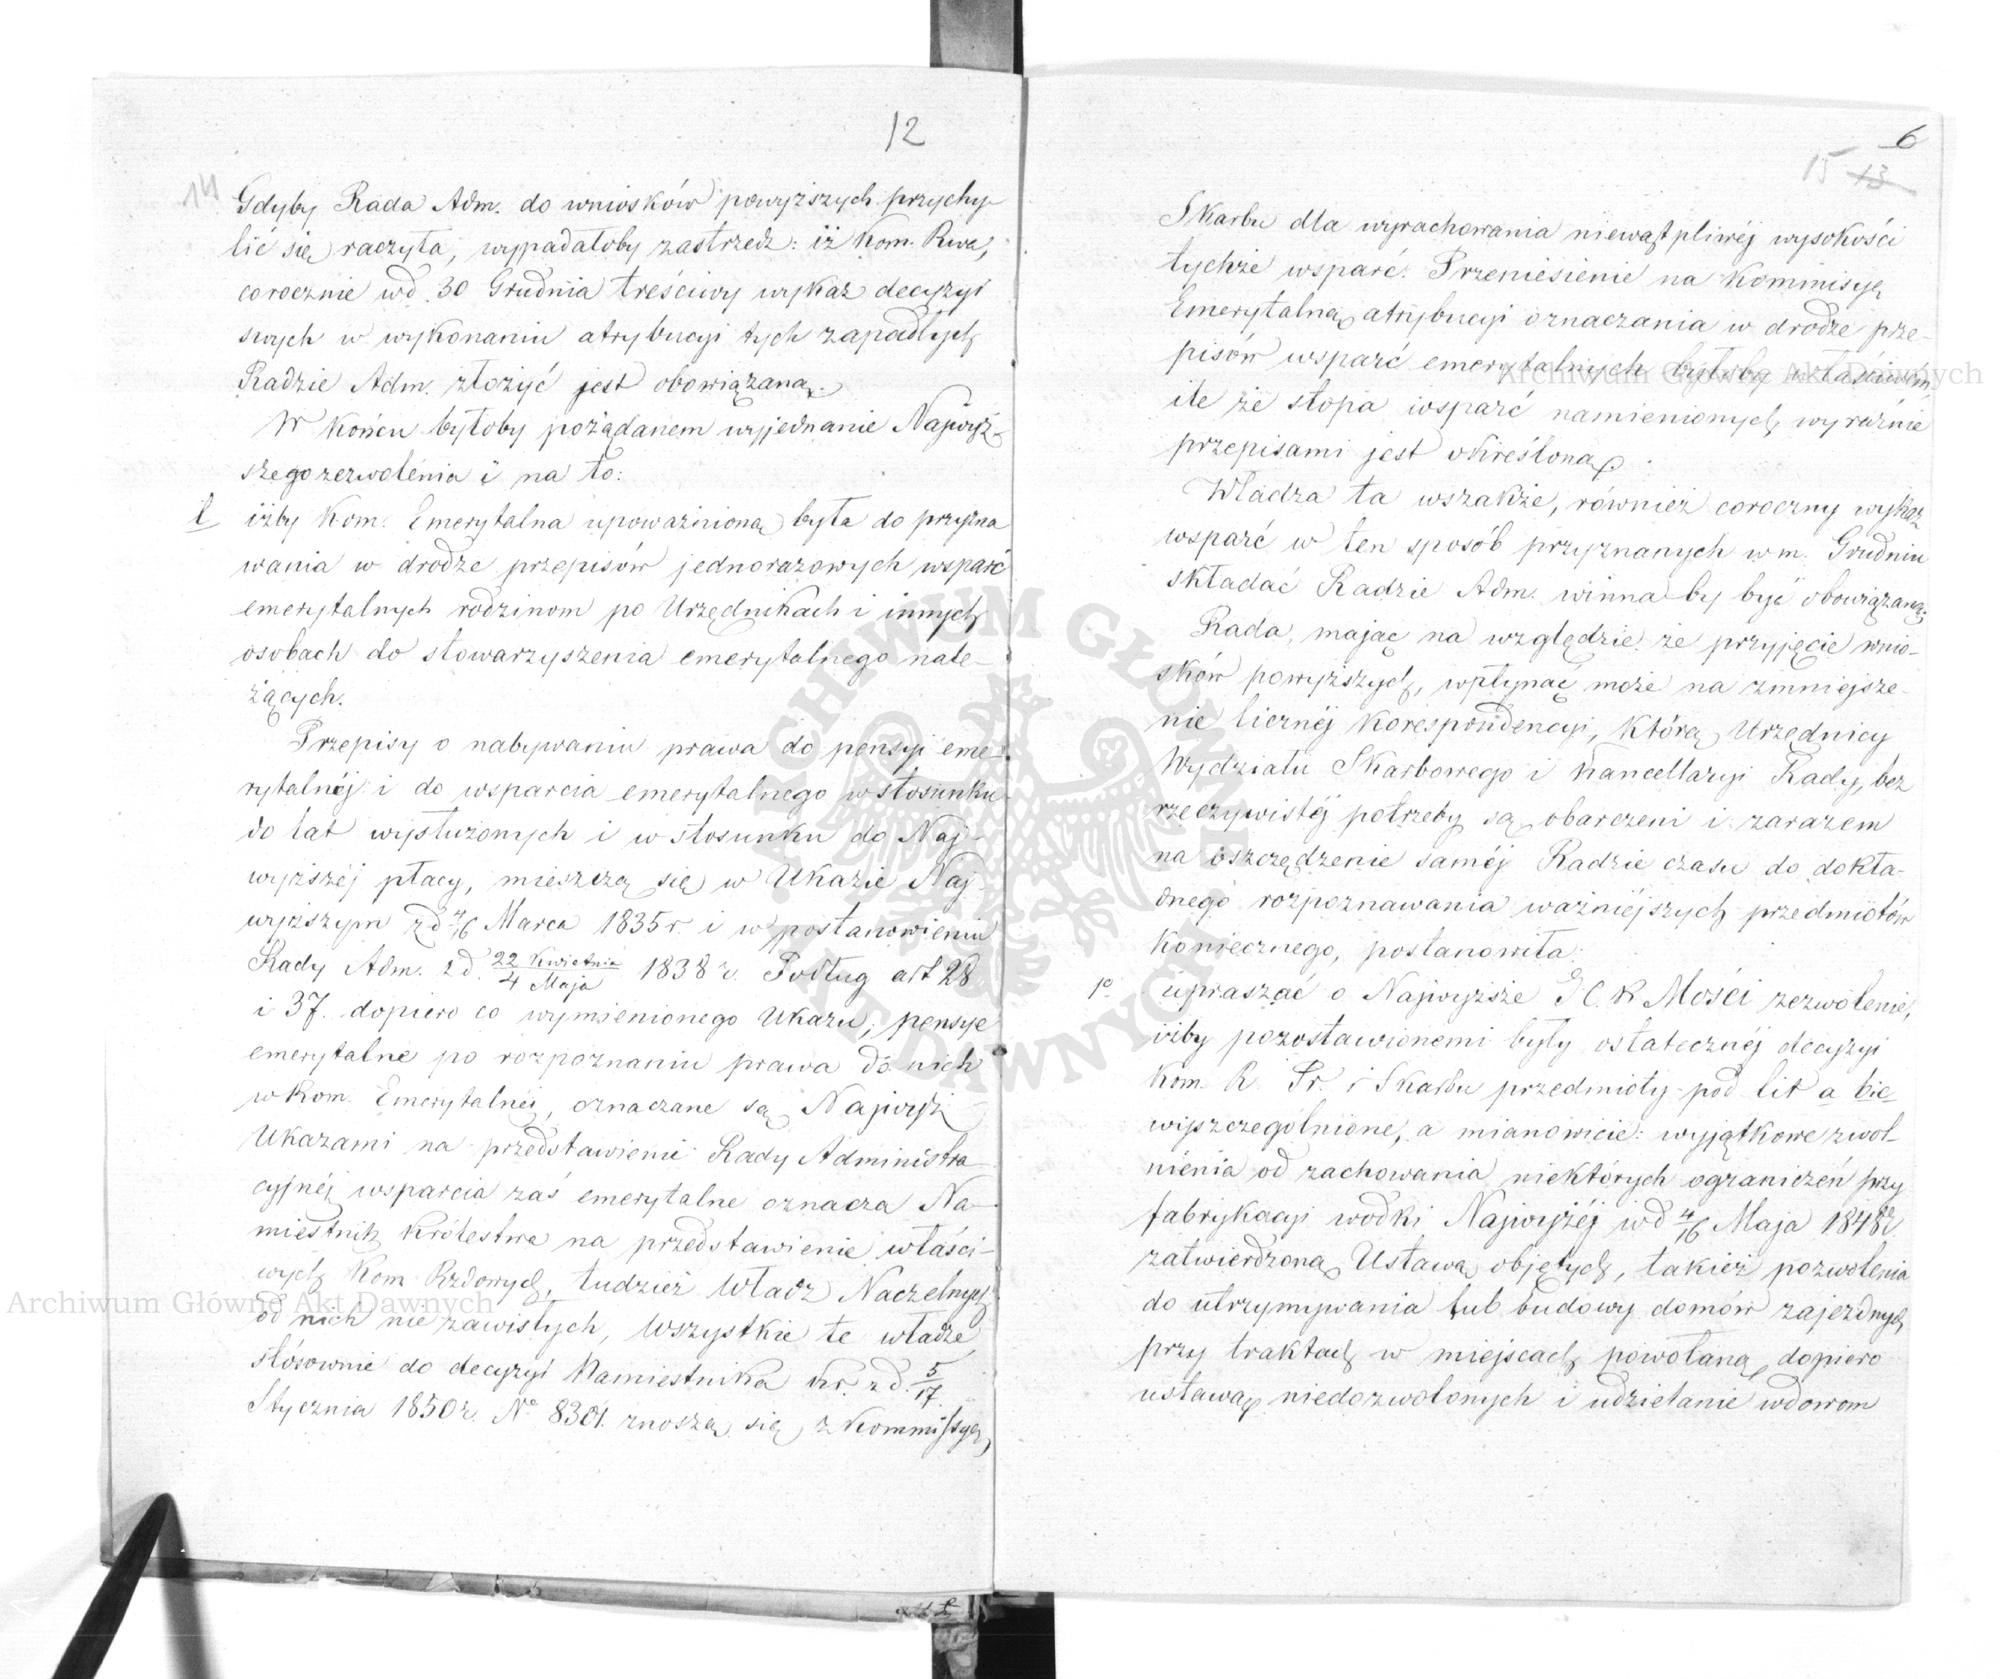 12
14
Gdyby Rada Adm. do wniosków powyższych przychy-
lić się raczyła, wypadałoby zastrzedz: iż Kom. Rwa,
corocznie w d. 30 Grudnia treściwy wykaz decyzyi
swych w wykonaniu atrybucyi tych zapadłych
Radzie Adm. złożyć jest obowiązaną.
W końcu byłoby pożądanem wyjednanie Najwyż-
szego zezwolenia i na to:
l iżby Kom. Emerytalna upoważnioną była do przyzna
wania w drodze przepisów jednorazowych wsparć
emerytalnych rodzinom po Urzędnikach i innych
osobach do stowarzyszenia emerytalnego nale-
żących.
Przepisy o nabywaniu prawa do pensyi eme-
rytalnéj i do wsparcia emerytalnego w stosunku
do lat wysłużonych i w stosunku do Naj-
wyższéj płacy, mieszczą się w Ukazie Naj-
wyższym z d 4/16 Marca 1835 r. i w postanowieniu
Rady Adm. z d. 22 Kwietnia/4 Maja 1838 r. Podług art 28
i 37. dopiero co wymienionego Ukazu, pensye
emerytalne po rozpoznaniu prawa do nich
w Kom. Emerytalnéj, oznaczane są Najwyż
Ukazami na przedstawienie Rady Administra
cyjnéj wsparcia zaś emerytalne oznacza Na-
miestnik Królestwa na przedstawienie właści-
wych Kom Rzdowych, tudzież Władz Naczelnych
od nich nie zawisłych, Wszystkie te władze
stósownie do decyzyi Namiestnika Kr. z d. 5/17.
Stycznia 1850 r. No 8301. znoszą się z Kommissyą
6
15 13
Skarbu dla wyrachowania niewątpliwéj wysokości
tychże wsparć. Przeniesienie na Kommisyę
Emerytalną atrybucyi oznaczania w drodze prze-
pisów wsparć emerytalnych byłoby właściwém,
ile że stopa wsparć namienionych wyraźnie
przepisami jest określoną.
Władza ta wszakże, również coroczny wykaz
wsparć w ten sposób przyznanych w m. Grudniu
składać Radzie Adm. winna by być obowiązaną.
Rada, mając na względzie że przyjęcie wnio-
sków powyższych, wpłynąć może na zmniejsze-
nie licznéj korespondencyi, którą Urzędnicy
Wydziału Skarbowego i Kancellaryi Rady, bez
rzeczywistéj potrzeby są obarczeni i zarazem
na oszczędzenie saméj Radzie czasu do dokła-
dnego rozpoznawania ważniéjszych przedmiotów
koniecznego, postanowiła:
1o upraszać o Najwyższe J C. K Mości zezwolenie,
iżby pozostawionemi były ostatecznéj decyzyi
Kom. R. Pr. i Skarbu przedmioty pod lit a b i e
wyszczególnione, a mianowicie: wyjątkowe zwol-
nienia od zachowania niektórych ograniczeń przy
fabrykacyi wódki Najwyżéj w d 4/16 Maja 1848 r.
zatwierdzoną Ustawą objętych, takież pozwolenia
do utrzymywania lub budowy domów zajezdnych
przy traktach w miejscach powołaną dopiero
ustawą niedozwolonych i udzielanie wdowom
Archiwum Główne Akt Dawnych
Archiwum Główne Akt Dawnych
ARCHIWUM GŁÓWNE AKT DAWNYCH